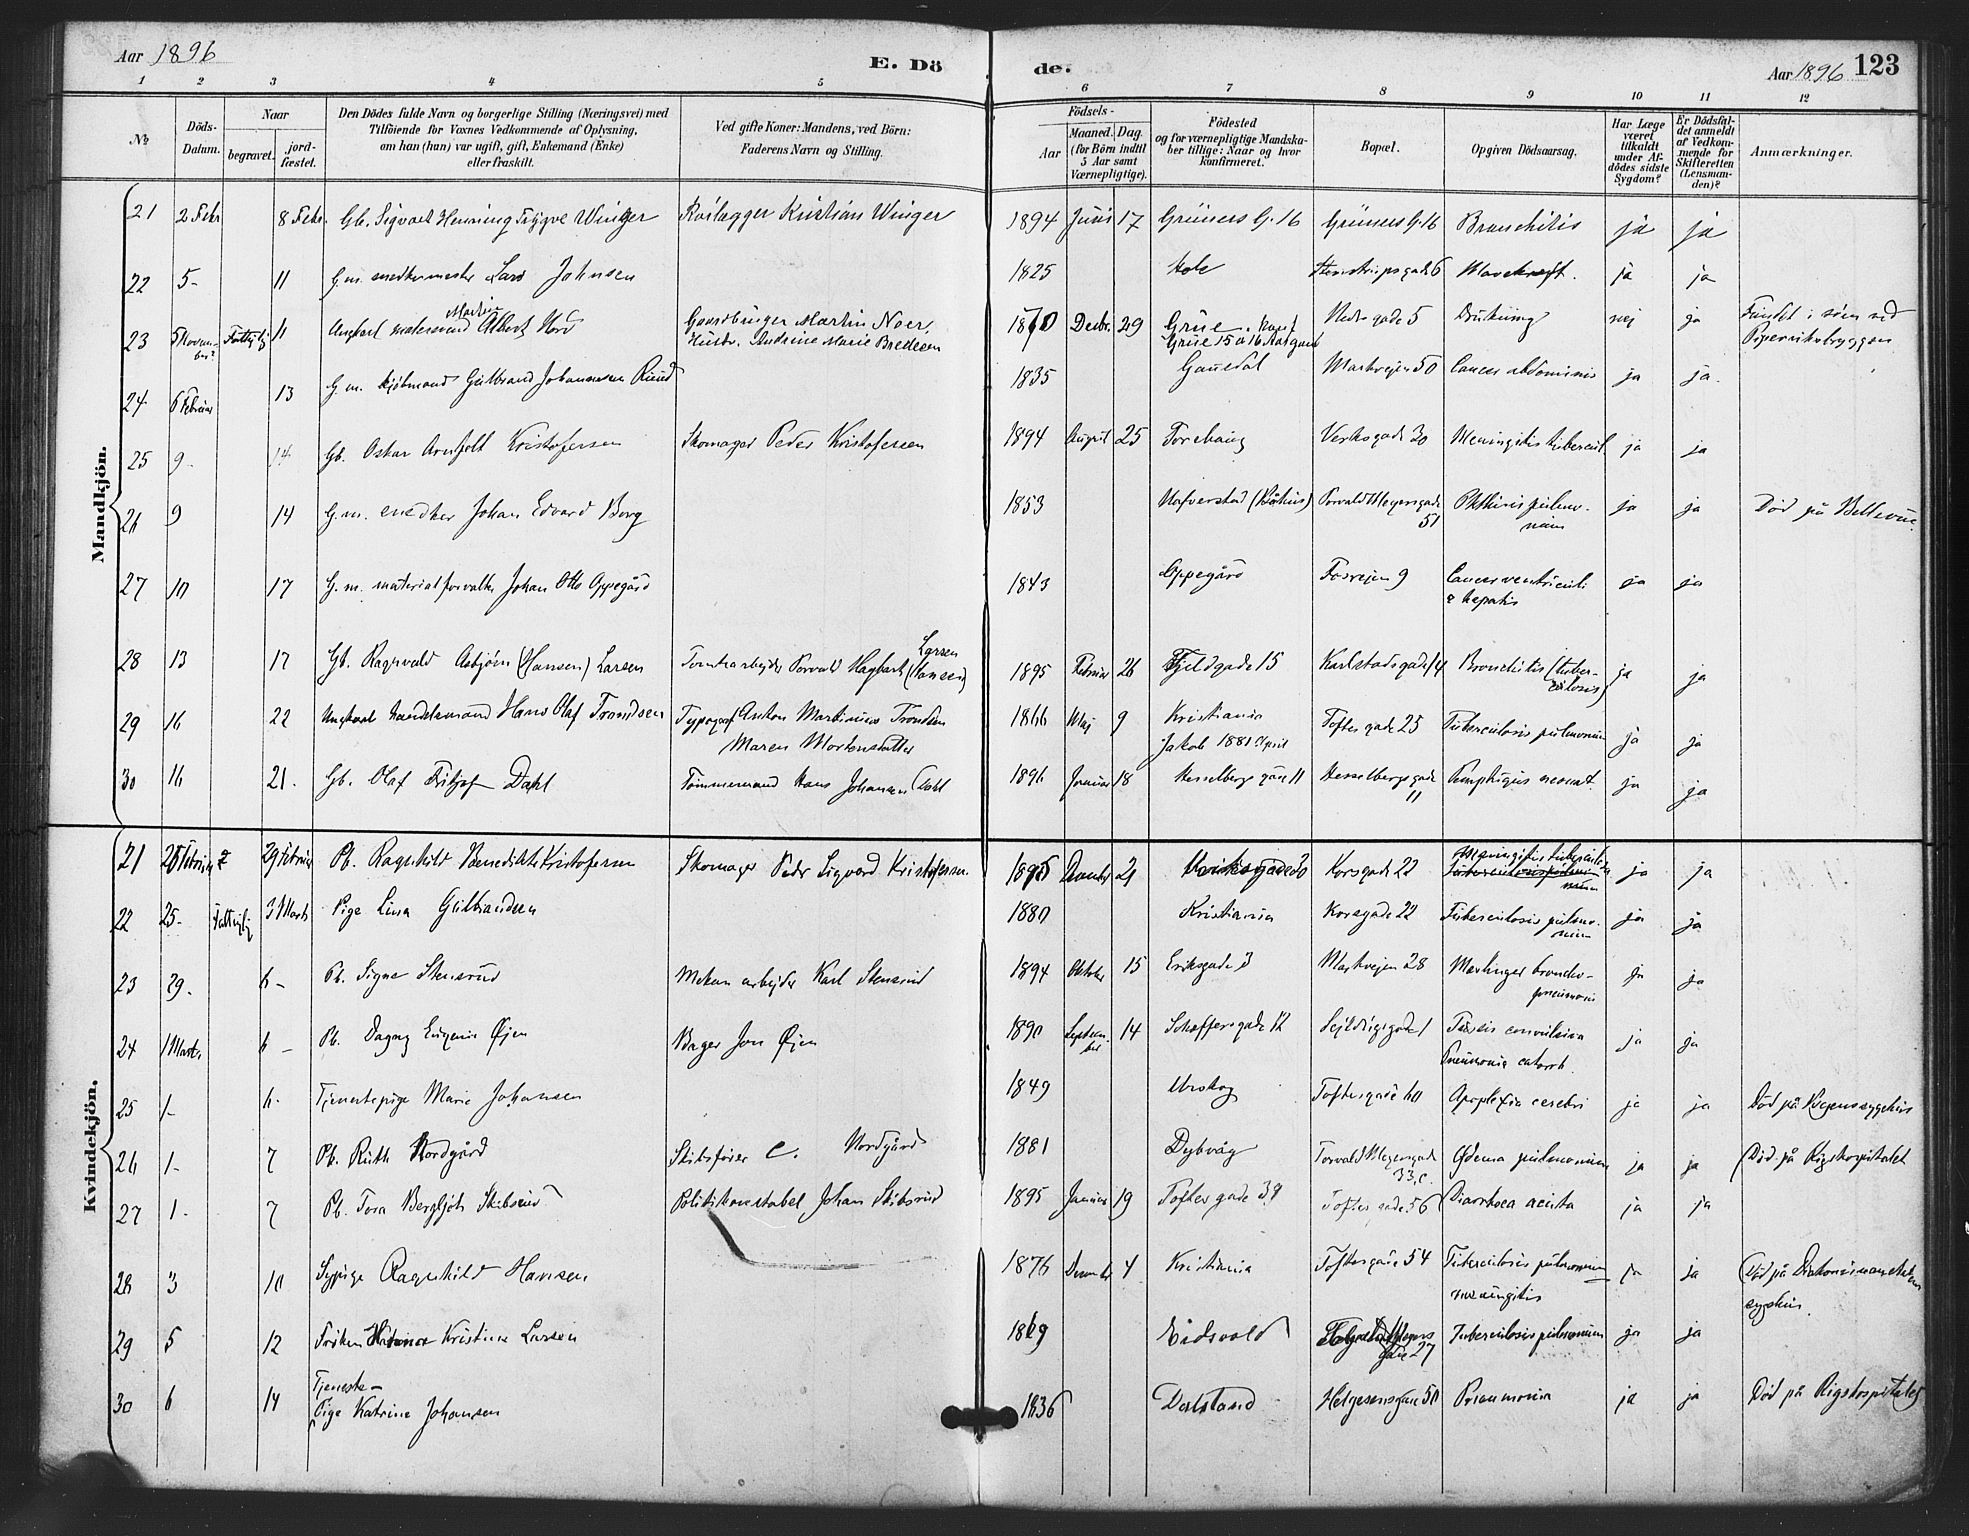 Aar 1896
E. Dö
de.
Aar 1896 123
1 2 3 4 5 6 7 8 9 10 11 12
No
Döds-Datum.
Naar
begravet.
jord-fæstet.
Den Dödes fulde Navn og borgerlige Stilling (Næringsvei) med
Tilföiende for Voxnes Vedkommende af Oplysning,
om han (hun) var ugift, gift, Enkemand (Enke)
eller fraskilt.
Ved gifte Koner: Mandens, ved Börn:
Faderens Navn og Stilling.
Födsels-
Aar
Maaned. Dag.
(for Börn indtil
5 Aar samt
Værnepligtige).
Födested
og for værnepligtige Mandska-
ber tillige: Naar og hvor
konfirmeret.
Bopæl.
Opgiven Dödsaarsag.
Har Læge
været
tilkaldt
under Af-
dödes sidste
Sygdom?
Er Dödsfal-
det anmeldt
af Vedkom-
mende for
Skifteretten
(Lensman-
den)?
Anmærkninger.
Mandkjön.
21 2 Febr 8 Febr. Gb. Sigvart Henning Trygve Winger Kristian Winger 1894 Juni 17 Grüners G. 16 Grüners G. 16 Bronchitis ja ja
22 5- 11 G.m. snedkermester Lars Johnsen 1825 Hole 6 Mavekræft. ja ja
23 11 Ungkarl Albert Nord Martin 1870 Decbr. 29 Grue 5 Drukning nej ja Fundet i söen ved
Gaardbruger Martin Noer,
Hustr. Andrine Marie Bredesen
Pipervikbryggen
24 6 Februar 13 G.m. kjöbmand Gulbrand Johannesen Rund 1835 Gausdal Markvejen 50 Cancer abdominis ja ja.
25 9- 14 Gb. Oskar Arnfelt Kristofersen Skomager Peder Kristofersen 1894 August 25 Verksgade 30 Meningitis tubercul. ja ja
26 9 14 G.m. snedker Johan Edvard Berg 1853 Torvald Meyersgade
51 Phthisis pulmo-
num ja ja Död på Bellevue.
27 10 17 G.m. materialforvalter Johan Otto Oppegård 1843 Oppegård Fosvejen 9 Cancer ventriculi
& hepatis ja ja
28 13 17 Gb. Ragnvald Asbjörn (Hansen) Larsen Tomtearbejder Torvald Hagbart Larsen (Hansen) 1895 Februar 26 Fjeldgade 15 Karlstadsgade 14 Bronchitis (tuber-
culosis) ja ja
29 16 22 Ungkarl handelsmand Hans Olaf Trondsen Typograf Anton Martinius Trondsen
Maren Mortensdatter 1866 Maj 9 Kristiania
Jakob 1881 April Toftes gade 25 Tuberculosis pulmonum ja ja
30 16 21. Gb. Olaf Fritjof Dahl Tömmermand Hans Johansen Dahl 1896 Januar 18 Hesselbergs gade 11 Hesselbergs gade
11 Pemphigus neonat. ja ja
Kvindekjön.
21 29 Februar Pb. Ragnhild Benedikte Kristofersen Skomager Peder Sigvard Kristofersen. 1895 21 Korsgade 22 Meningitis tuberculosa ja ja
22 25- Fattiglig 3 Marts Pige Lina Gulbrandsen 1880 Kristiania Korsgade 22 Tuberculosis pulmo-
num ja ja
23 29. 6- Pb. Signe Stensrud Mekan. arbejder Karl Stensrud 1894 Oktober 15 Eriksgade 3 Markvejen 28 Mæslinger broncho-
pneumoni ja ja
24 1 Marts 6- Pb. Dagny Eugenie Öjen Bager Jon Öjen 1890 Septem-
ber 14 Schøffersgade 12 Sejldugsgade 1 Tussis convulsiva
Pneumonia catarrh. ja ja
25 1- 6- Tjenestepige Marie Johansen 1849 Urskog Toftesgade 60 Apoplexia cerebri ja ja
26 1- 7 Pb. Ruth Nordgård Skibsförer C. Nordgård 1881 Dybvåg Torvald Meyersgade
33, c. Ødema pulmonum ja ja Död på Rigshospitalet
27 1- 7 Pb. Tora Bergljot Skibsrud Politikonstabel Johan Skibsrud 1895 Januar 19 Toftes gade 38 Toftes gade 56 Diarrhoea acuta ja ja
28 3 10 Sypige Ragnhild Hansen 1876 December 4 Kristiania Toftesgade 54 Tuberculosis pulmonum
meningitis ja ja Död på
sygehus.
29 5 12 Fröken Kristine Larsen 1869 Eidsvold Meyers
gade 27 Tuberculosis pulmonum ja ja
30 6 14 Tjeneste-
Pige Katrine Johansen 1836 Dalsland Helgesensgade 50 Pneumonia ja ja Död på Rigshospitalet